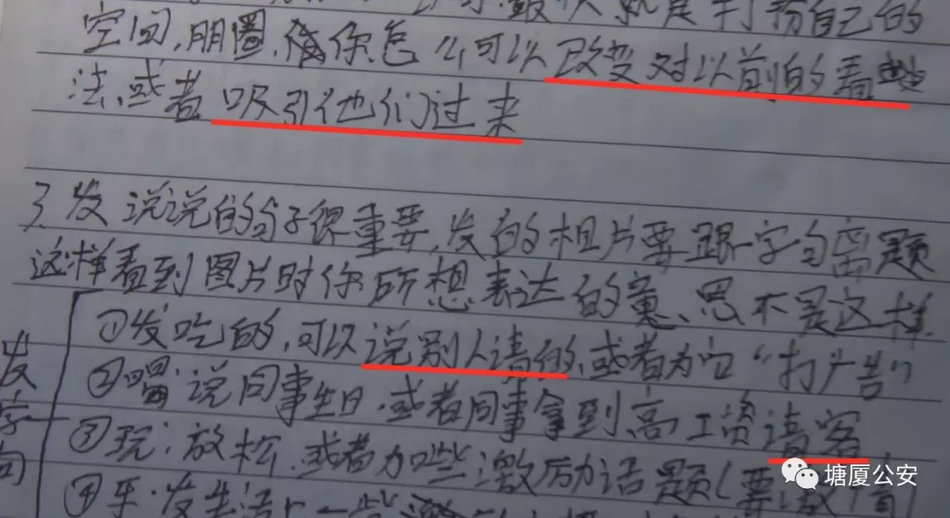 就是打扮自己的
空间,朋圈,借你怎么可以改变对以前的看
法,或者吸引他们过来
3,发说说的句子很重要,发的相片要跟字句离题
这样看到图片时你所想表达的意思不是这样
①发吃的,可以说别人请的,或者为它“打广告”
②唱:说同事生日,或者同事拿到高工资请客
③玩:放松,或者加些激励话题(要
④
发
字
句
塘厦公安